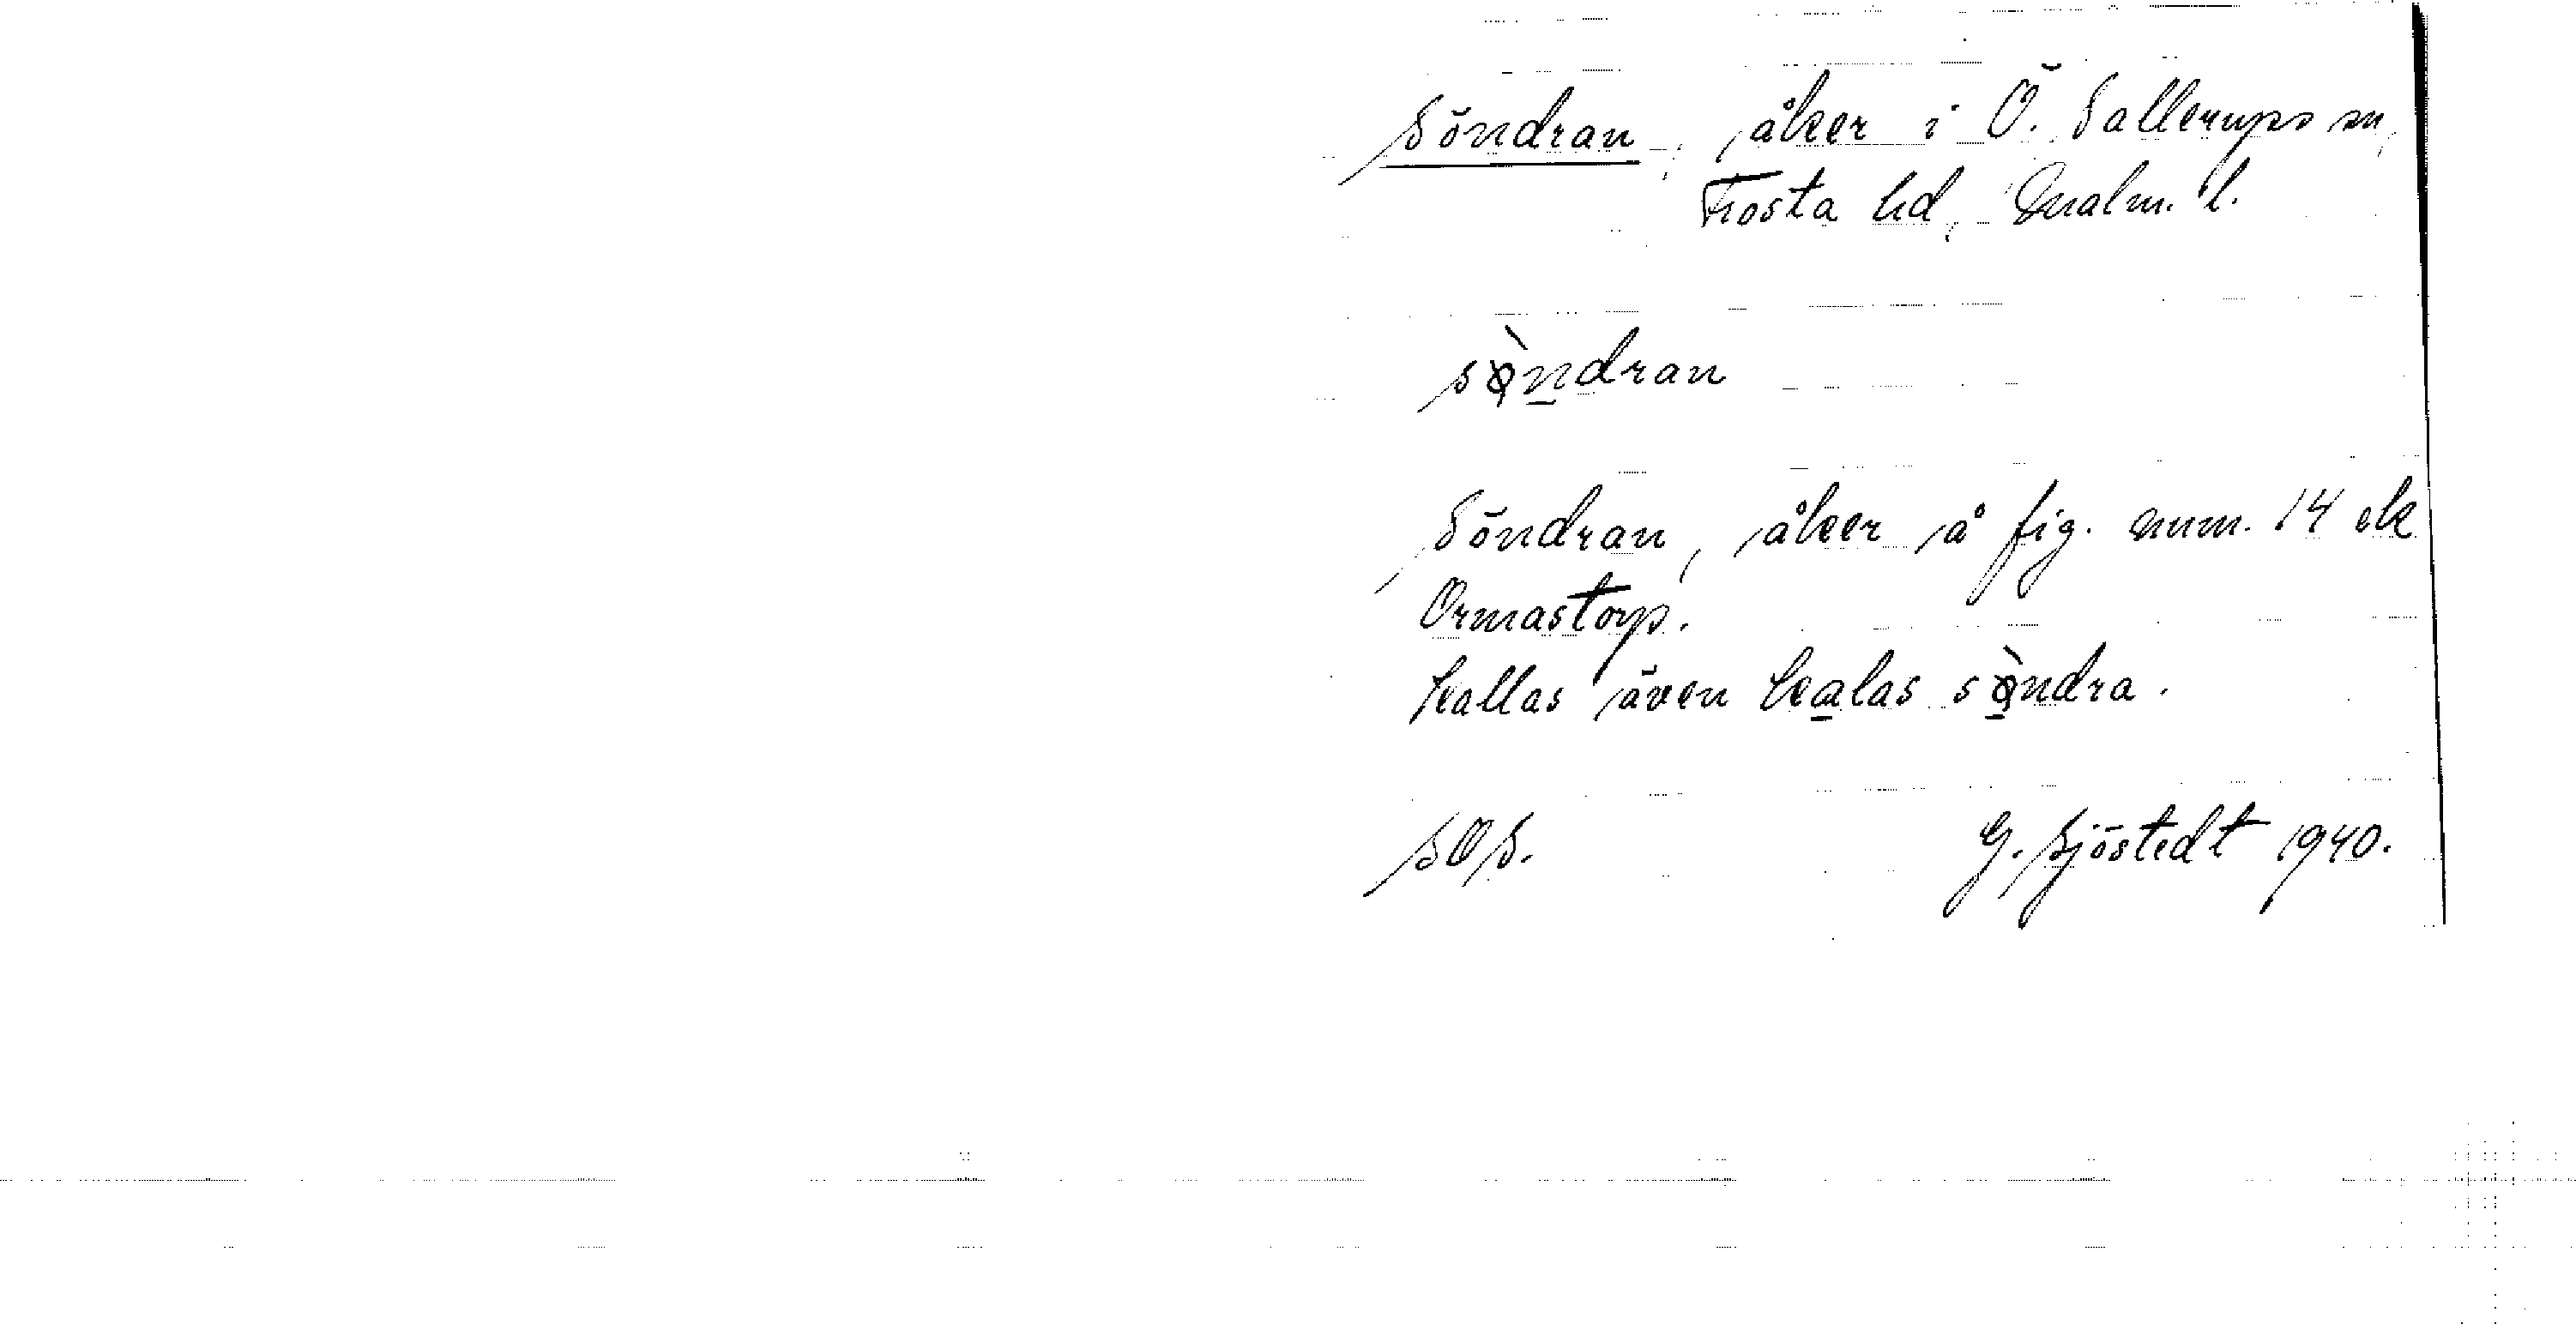 Söndran, åker i Ö. Sallerups sn,
Frosta hd, Malm. l.
sø̀ndran
Söndran, åker å fig. num. 14 ek
Ormastorp.
Kallas även kalas sø̀ndra.
SOS. G. Sjöstedt 1940.